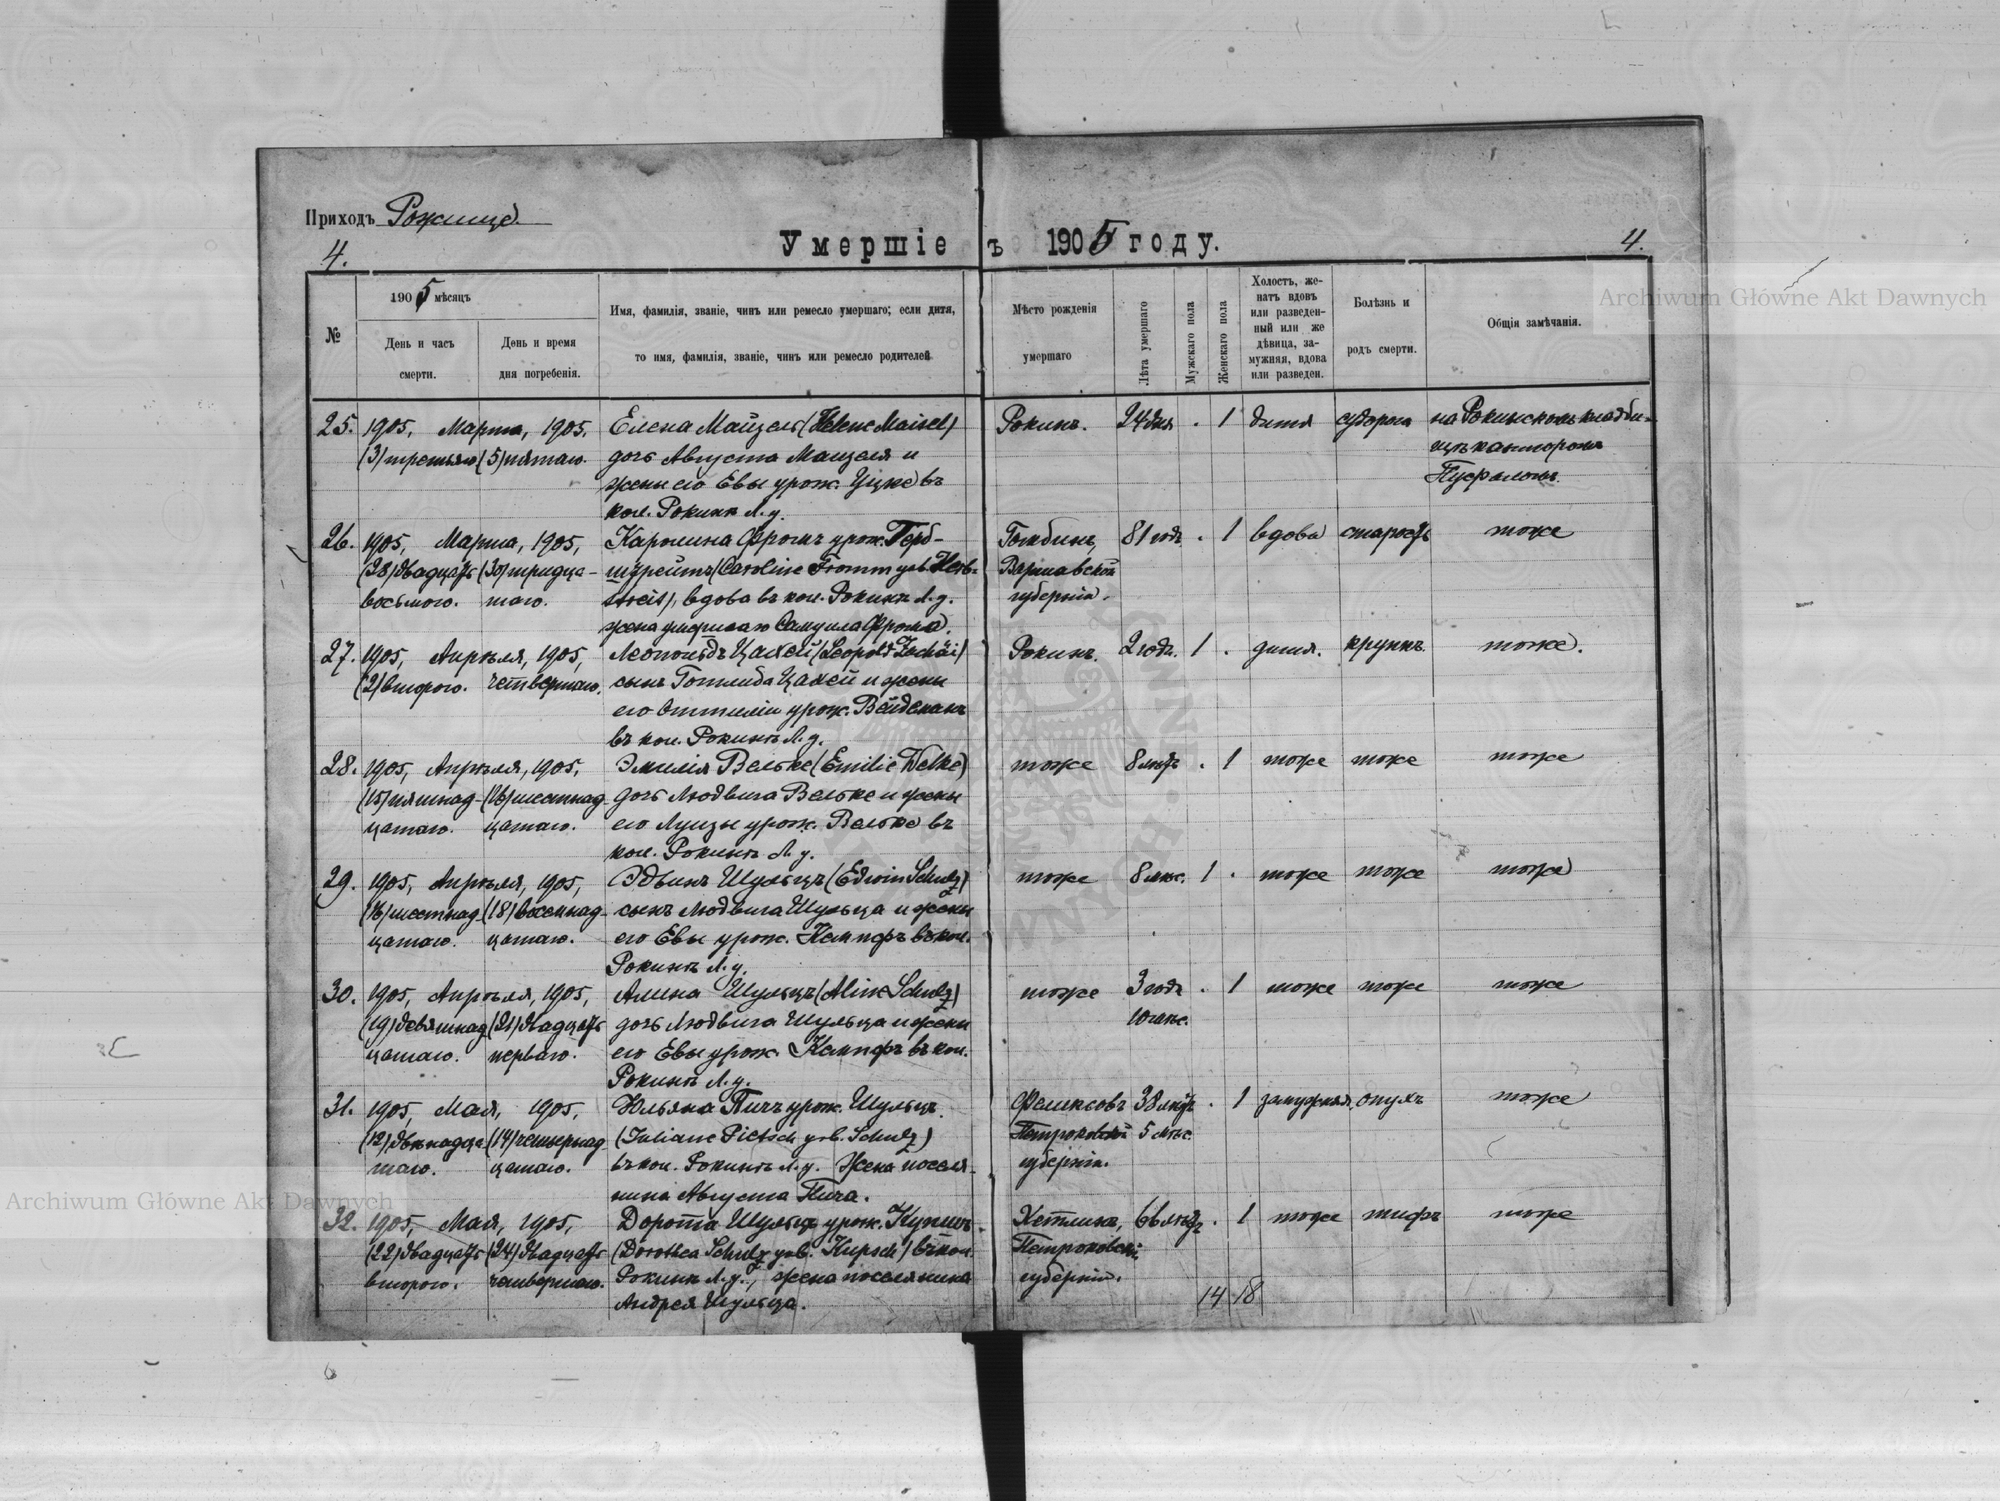 Приходъ Рожище.
Умершіе ъ 1905 году.
4.
4.
Archiwum Główne Akt Dawnych
№
1905 мѣсяцъ
День и часъ
смерти.
День и время
дня погребенія.
Имя, фамилія, званіе, чинъ или ремесло умершаго; если дитя,
то имя, фамилія, званіе, чинъ или ремесло родителей.
Мѣсто рожденія
умершаго
Лѣта умершаго
Мужскаго пола
Женскаго пола
Холостъ, же-
натъ вдовъ
или разведен-
ный или же
дѣвица, за-
мужняя, вдова
или разведен.
Болѣзнь и
родъ смерти.
Общія замѣчанія.
25. 1905, Марта, 1905, Елена Майзель (Helene Maisel) Рокинъ. 24 дня . 1 дитя судорога на Рокинскомъ кладби-
(3) третьяго (5) пятаго. дочь Августа Майзеля и щѣ канторомъ
жены его Евы урож. въ
кол. Рокинъ Л. у.
26. 1905, Марта, 1905, Каролина Фроммъ урож. Герб- Гомбинъ, 81 годъ . 1 вдова старость тоже
(28) двадцать (30) тридца- штрейтъ (Caroline Fromm geb. Herb- Варшавской
восьмого. таго. streit), вдова въ кол. Рокинъ Л. у. губерніи.
жена умершаго Самуила Фромма.
27. 1905, Апрѣля, 1905, Леопольдъ Цахей (Leopold Zachäi) Рокинъ. 2 года. 1 . дитя. крупъ. тоже.
(2) второго. четвертаго. сынъ Готлиба Цахей и жены
его Оттиліи урож. Вейдеманъ
въ кол. Рокинъ Л. у.
28. 1905, Апрѣля, 1905, Эмилія Вельке (Emilie Welke) тоже 8 лѣтъ . 1 тоже тоже тоже
(15) пятнад- (16) шестнад- дочь Людвига Вельке и жены
цатаго. цатаго. его Луизы урож. Вельке въ
кол. Рокинъ Л. у.
29. 1905, Апрѣля, 1905, Эдвинъ Шульцъ (Edwin Schulz) тоже 8 мѣс. 1 . тоже тоже тоже
(16) шестнад- (18) восемнад- сынъ Людвига Шульца и жены
цатаго. цатаго. его Евы урож. Кемпфъ въ кол.
Рокинъ Л. у.
30. 1905, Апрѣля, 1905, Алина Шульцъ (Aline Schulz) тоже 3 года . 1 тоже тоже тоже
(19) девятнад- (21) двадцать дочь Людвига Шульца и жены 10 мѣс.
цатаго. перваго. его Евы урож. Кемпфъ въ кол.
Рокинъ Л. у.
31. 1905, Мая, 1905, Юльяна Пичъ урож. Шульцъ Феликсовъ 38 лѣтъ . 1 замужняя опухъ тоже
(12) двѣнадца- (14) четырнад- (Juliane Pietsch geb. Schulz) Петроковской 5 мѣс.
таго. цатаго. въ кол. Рокинъ Л. у. Жена поселя- губерніи.
нина Августа Пича.
32. 1905, Мая, 1905, Доротa Шульцъ урож. Купшъ 66 лѣтъ . 1 тоже тифъ тоже
(22) двадцать (24) двадцать (Dorothea Schulz geb. Kupsch) въ кол. Петроковской
второго. четвертаго. Рокинъ Л. у., жена поселянина губерніи.
Андрея Шульца.
14 18
Archiwum Główne Akt Dawnych